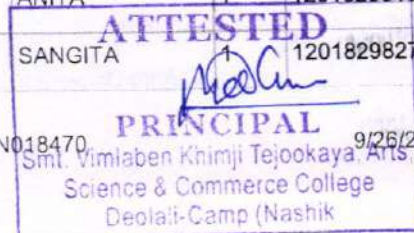 ATTESTED
SANGITA 1 1201829827
PRINCIPAL
N018470 9/26/2
Smt. Vimlaben Khimji Tejookaya, Arts
Science & Commerce College
Deolali-Camp (Nashik